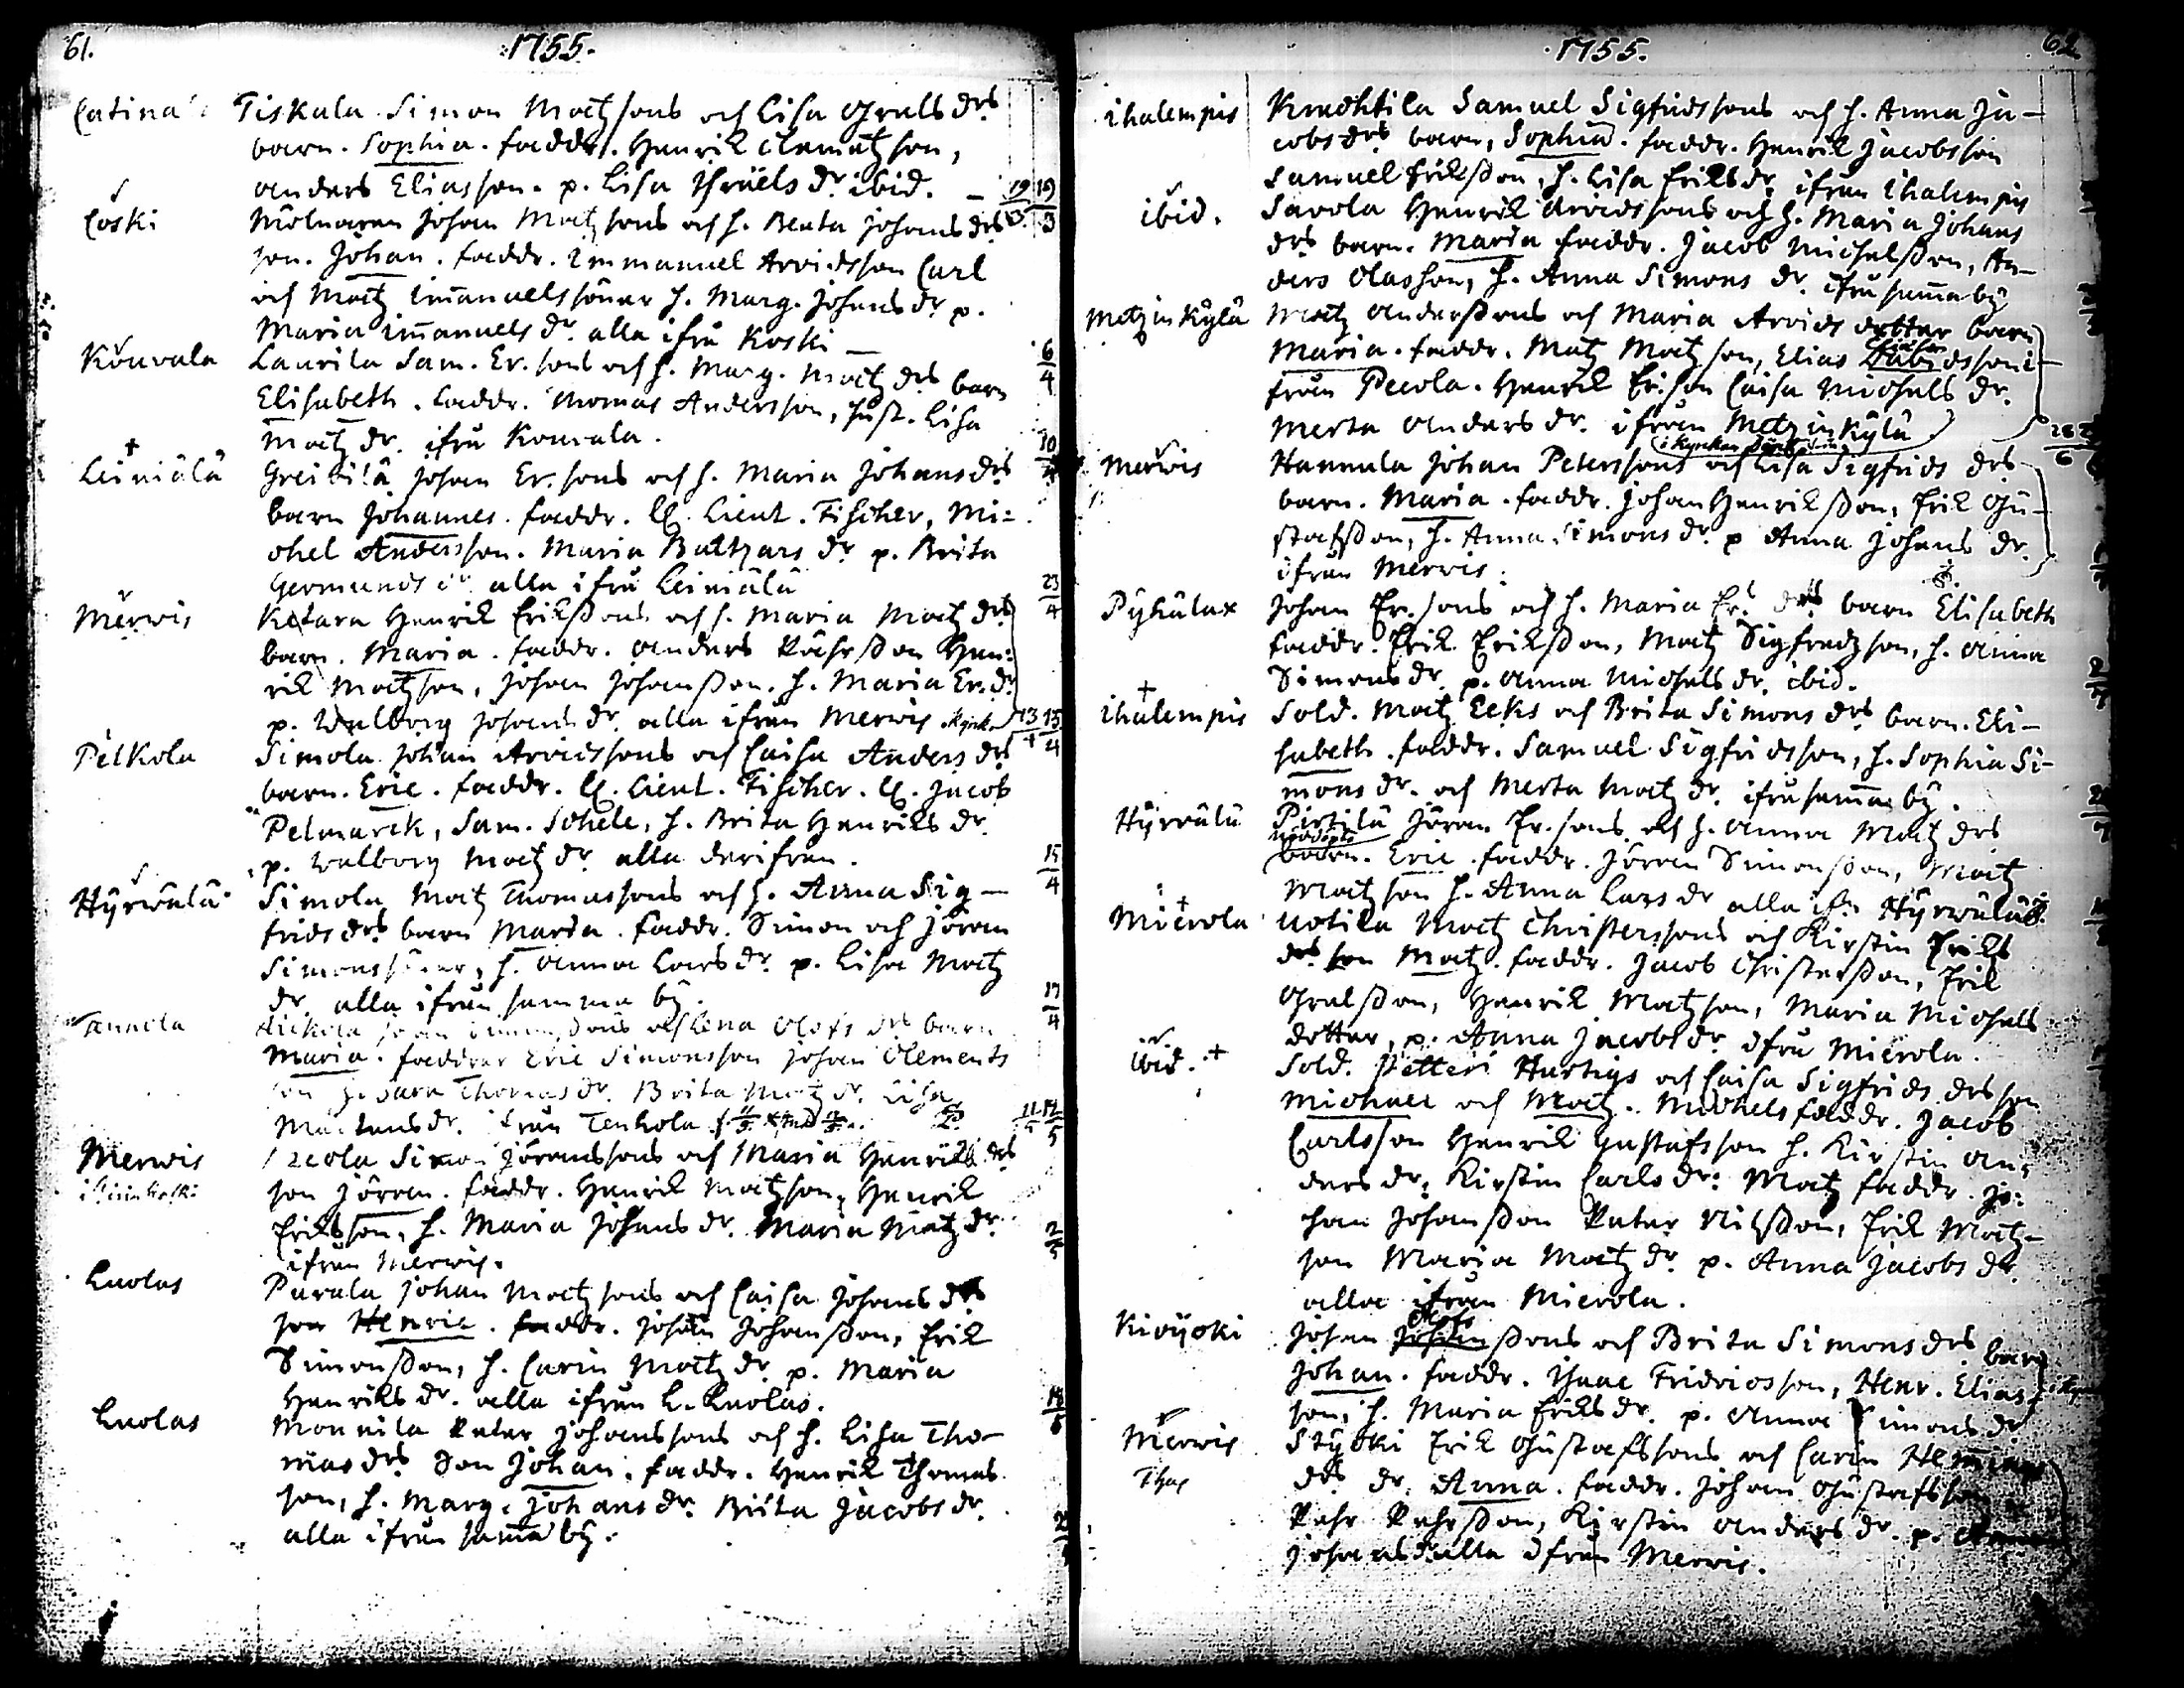 61.
1755.
Latina
Tiskala Simon Matz sons och Lisa Gralls drs
barn. Sophia. faddr. Henrik Clemetzson,
Anders Eliasson. p. Lisa Israels dr ibid. 19/3 19/3
Coski
Mölnaren Johan Matz sons och h. Beata Johans drs
son. Johan. faddr. Immanuel Arvidsson Carl
och Matz Imanuelssöner h. Marg. Johans dr p.
Maria Imanuels dr alla ifrå Koski 6/4
Kouvala
Laurila Sam. Er. sons och h. Marg. Matz drs barn
Elisabeth. faddr. Thomas Andersson, hust. Lisa
Matz dr. ifrå Kouvala. 10/4
Leiniälä
Greibilä Johan Er. sons och h. Maria Johans drs
barn Johannes. faddr. H. Lieut. Fischer, Mi=
chel Andersson. Maria Baltzars dr p. Brita
Germunds dr alla ifrå Leiniälä 23/4
Merwis
Ketara Henrik Erikssons och h. Maria Matz drs
barn. Maria. faddr. Anders Påhrsson Hen:
rik Matzson, Johan Johansson. h. Maria Er. dr
p. Walborg Johans dr alla ifrån Merwis. 13/4 13/4
Pelkola
Simola Johan Arvidssons och Caisa Anders drs
barn. Eric. faddr. H. Lieut. Fischer. H. Jacob
Pelmarck, Sam. Schele, h. Brita Henriks dr.
p. Walborg Matz dr alla derifrån. 15/4
Hyrwälä
Simola Matz Thomassons och h. Anna Sig-
frids drs barn Maria. faddr. Simon och Jöran
Simonssöner, h. Anna Lars dr p. Lisa Matz
dr alla ifrån samma by. 17/4
Lena Olofs drs barn
Maria. faddrar Eric Simonsson Johan Clements
son h. Sara Thomas dr. Brita Matz dr. Lisa
dr. ifrån Tenhola
Merwis
Simon Jöranssons och Maria Henriks drs
son Jöran. faddr. Henrik Matzson, Henrik
Eriksson, h. Maria Johans dr. Maria Matz dr.
ifrån Merwis. 2/5
Luolas
Parala Johan Matz sons och Caisa Johans drs
son Henric. faddr. Johan Johansson, Erik
Simonsson, h. Carin Matz dr p. Maria
Henriks dr. alla ifrån L. Luolas.
Luolas
Mounila Petter Johanssons och h. Lisa Tho-
mas drs Son Johan. faddr. Henrik Thomas
son, h. Marg. Johans dr. Brita Jacobs dr.
alla ifrån sama by.
1755.
62
Ihalempis
Knuhtila Samuel Sigfridssons och h. Anna Ja-
cobs drs barn, Sophia. faddr. Henrik Jacobsson
Samuel Eriksson, h. Lisa Eriks dr. ifrån Ihalempis
ibid.
Savola Henrik Arvidssons och h. Maria Johans
drs barn. Maria faddr. Jacob Michelsson, An-
ders Olasson, h. Anna Simons dr. ifrå sama by
Metzinkylä
Matz Anderssons och Maria Arvids dotter barn
Maria. faddr. Matz Matz son, Elias
från Pecola. Henrik Er. son Caisa Michels dr.
Merta Anders dr. ifrån Metzinkylä
Merwis
Hannula Johan Peterssons och Lisa Sigfrids drs
barn. Maria. faddr. Johan Henriksson, Erik Gu-
stafsson, h. Anna Simons dr. p Anna Johans dr.
ifrån Merwis.
Pyhälax
Johan Er. sons och h. Maria Ers drs barn Elisabeth
faddr. Erik Eriksson, Matz Sigfredzson, h. Anna
Simons dr. p. Anna Michels dr. ibid.
Ihalempis
Sold. Matz Ecks och Brita Simons drs barn. Eli-
sabeth. faddr. Samuel Sigfridsson, h. Sophia Si-
mons dr. och Merta Matz dr. ifrå sama by.
Hyrwälä
Pirtilä Jöran Er. sons och h. Anna Matz drs
nöddöpte
barn. Eric. faddr. Jöran Simonsson, Matz
Matzson h. Anna Lars dr alla ifr. Hyrwälä
Mierola
Uotila Matz Christerssons och Kirstin Eriks
drs son Matz. faddr. Jacob Christersson, Erik
Gralsson, Henrik Matzson, Maria Michels
dotter, p. Anna Jacobs dr ifrå Mierola.
ibid.
Sold. Petter Hartigs och Caisa Sigfrids drs son
Michael och Matz. Michels faddr. Jacob
Carlsson Henrik Gustafsson h. Kirstin An:
ders dr. Kirstin Carls dr: Matz faddr. Jo:
han Johansson Peter Nilsson, Erik Matz-
son Maria Matz dr. p. Anna Jacobs dr.
alla ifrån Mierola.
Kivijoki
Olofs
Johan ssons och Brita Simons drs barn
Johan. faddr. Isaac Fridricsson, Henr. Elias
son, h. Maria Eriks dr. p. Anna Simons dr
Merwis
Stycki Erik Gustafssons och Carin Hemmings
drs dr. Anna. faddr. Johan Gustafsson
Påhr Påhrsson, Kirstin Anders dr. p. Anna
Johans dr alla ifrån Merwis.